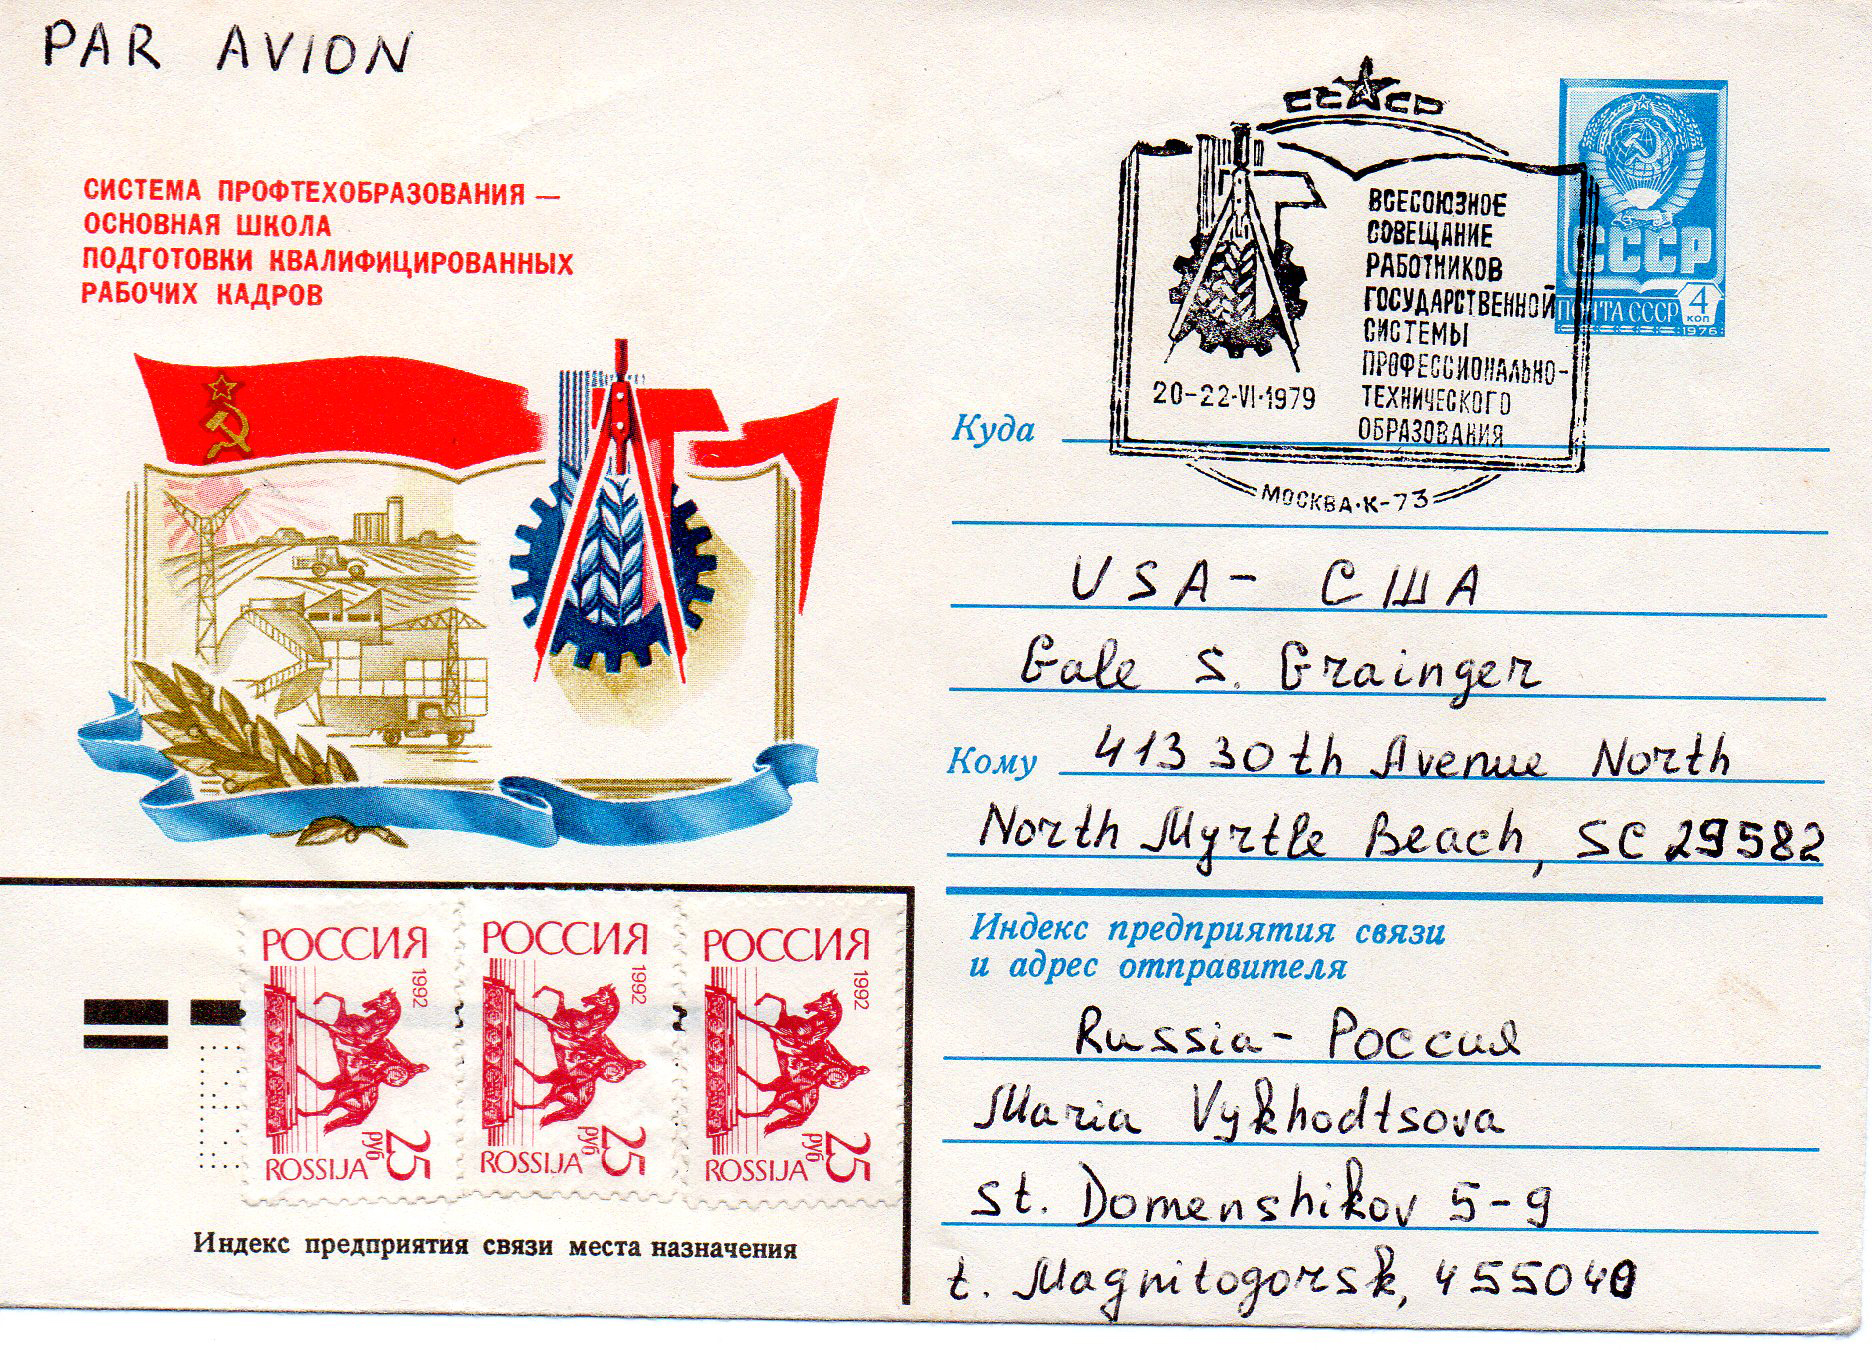 PAR AVION
СИСТЕМА ПРОФТЕХОБРАЗОВАНИЯ —
ОСНОВНАЯ ШКОЛА
ПОДГОТОВКИ КВАЛИФИЦИРОВАННЫХ
РАБОЧИХ КАДРОВ
СССР
ВСЕСОЮЗНОЕ
СОВЕЩАНИЕ
РАБОТНИКОВ
ГОСУДАРСТВЕННОЙ
СИСТЕМЫ
ПРОФЕССИОНАЛЬНО-
ТЕХНИЧЕСКОГО
ОБРАЗОВАНИЯ
20-22·VI·1979
МОСКВА·К-73
СССР
ПОЧТА СССР 4 КОП
1976
Куда
USA - США
Gale S. Grainger
Кому 413 30th Avenue North
North Myrtle Beach, SC 29582
Индекс предприятия связи
и адрес отправителя
Russia - Россия
Maria Vykhodtsova
st. Domenshikov 5-9
t. Magnitogorsk, 455040
РОССИЯ
1992
25 руб
ROSSIJA
РОССИЯ
1992
25 руб
ROSSIJA
РОССИЯ
1992
25 руб
ROSSIJA
Индекс предприятия связи места назначения